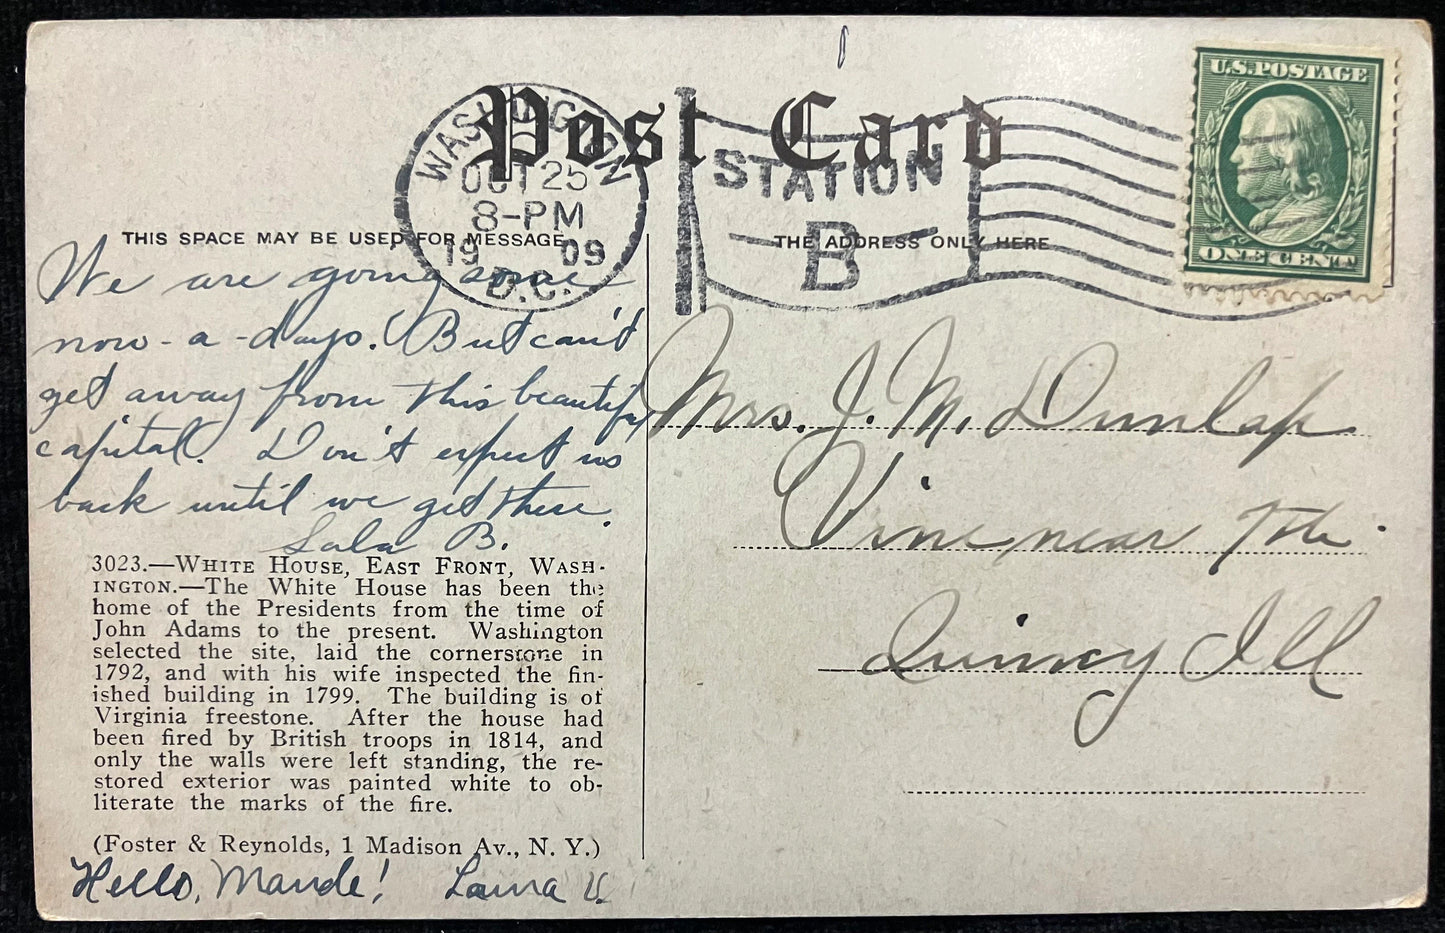 Post Card
WASHINGTON
OCT 25
8-PM
1909
D.C.
STATION
B
U.S. POSTAGE
ONE CENT
THIS SPACE MAY BE USED FOR MESSAGE
THE ADDRESS ONLY HERE
We are going some
now-a-days. But can't
get away from this beautiful
capital. Don't expect us
back until we get there.
Lala B.
3023.—WHITE HOUSE, EAST FRONT, WASH-
INGTON.—The White House has been the
home of the Presidents from the time of
John Adams to the present. Washington
selected the site, laid the cornerstone in
1792, and with his wife inspected the fin-
ished building in 1799. The building is of
Virginia freestone. After the house had
been fired by British troops in 1814, and
only the walls were left standing, the re-
stored exterior was painted white to ob-
literate the marks of the fire.
(Foster & Reynolds, 1 Madison Av., N. Y.)
Hello, Maude! Laura V.
Mrs. J. M. Dunlap
Vine near 7th
Quincy Ill